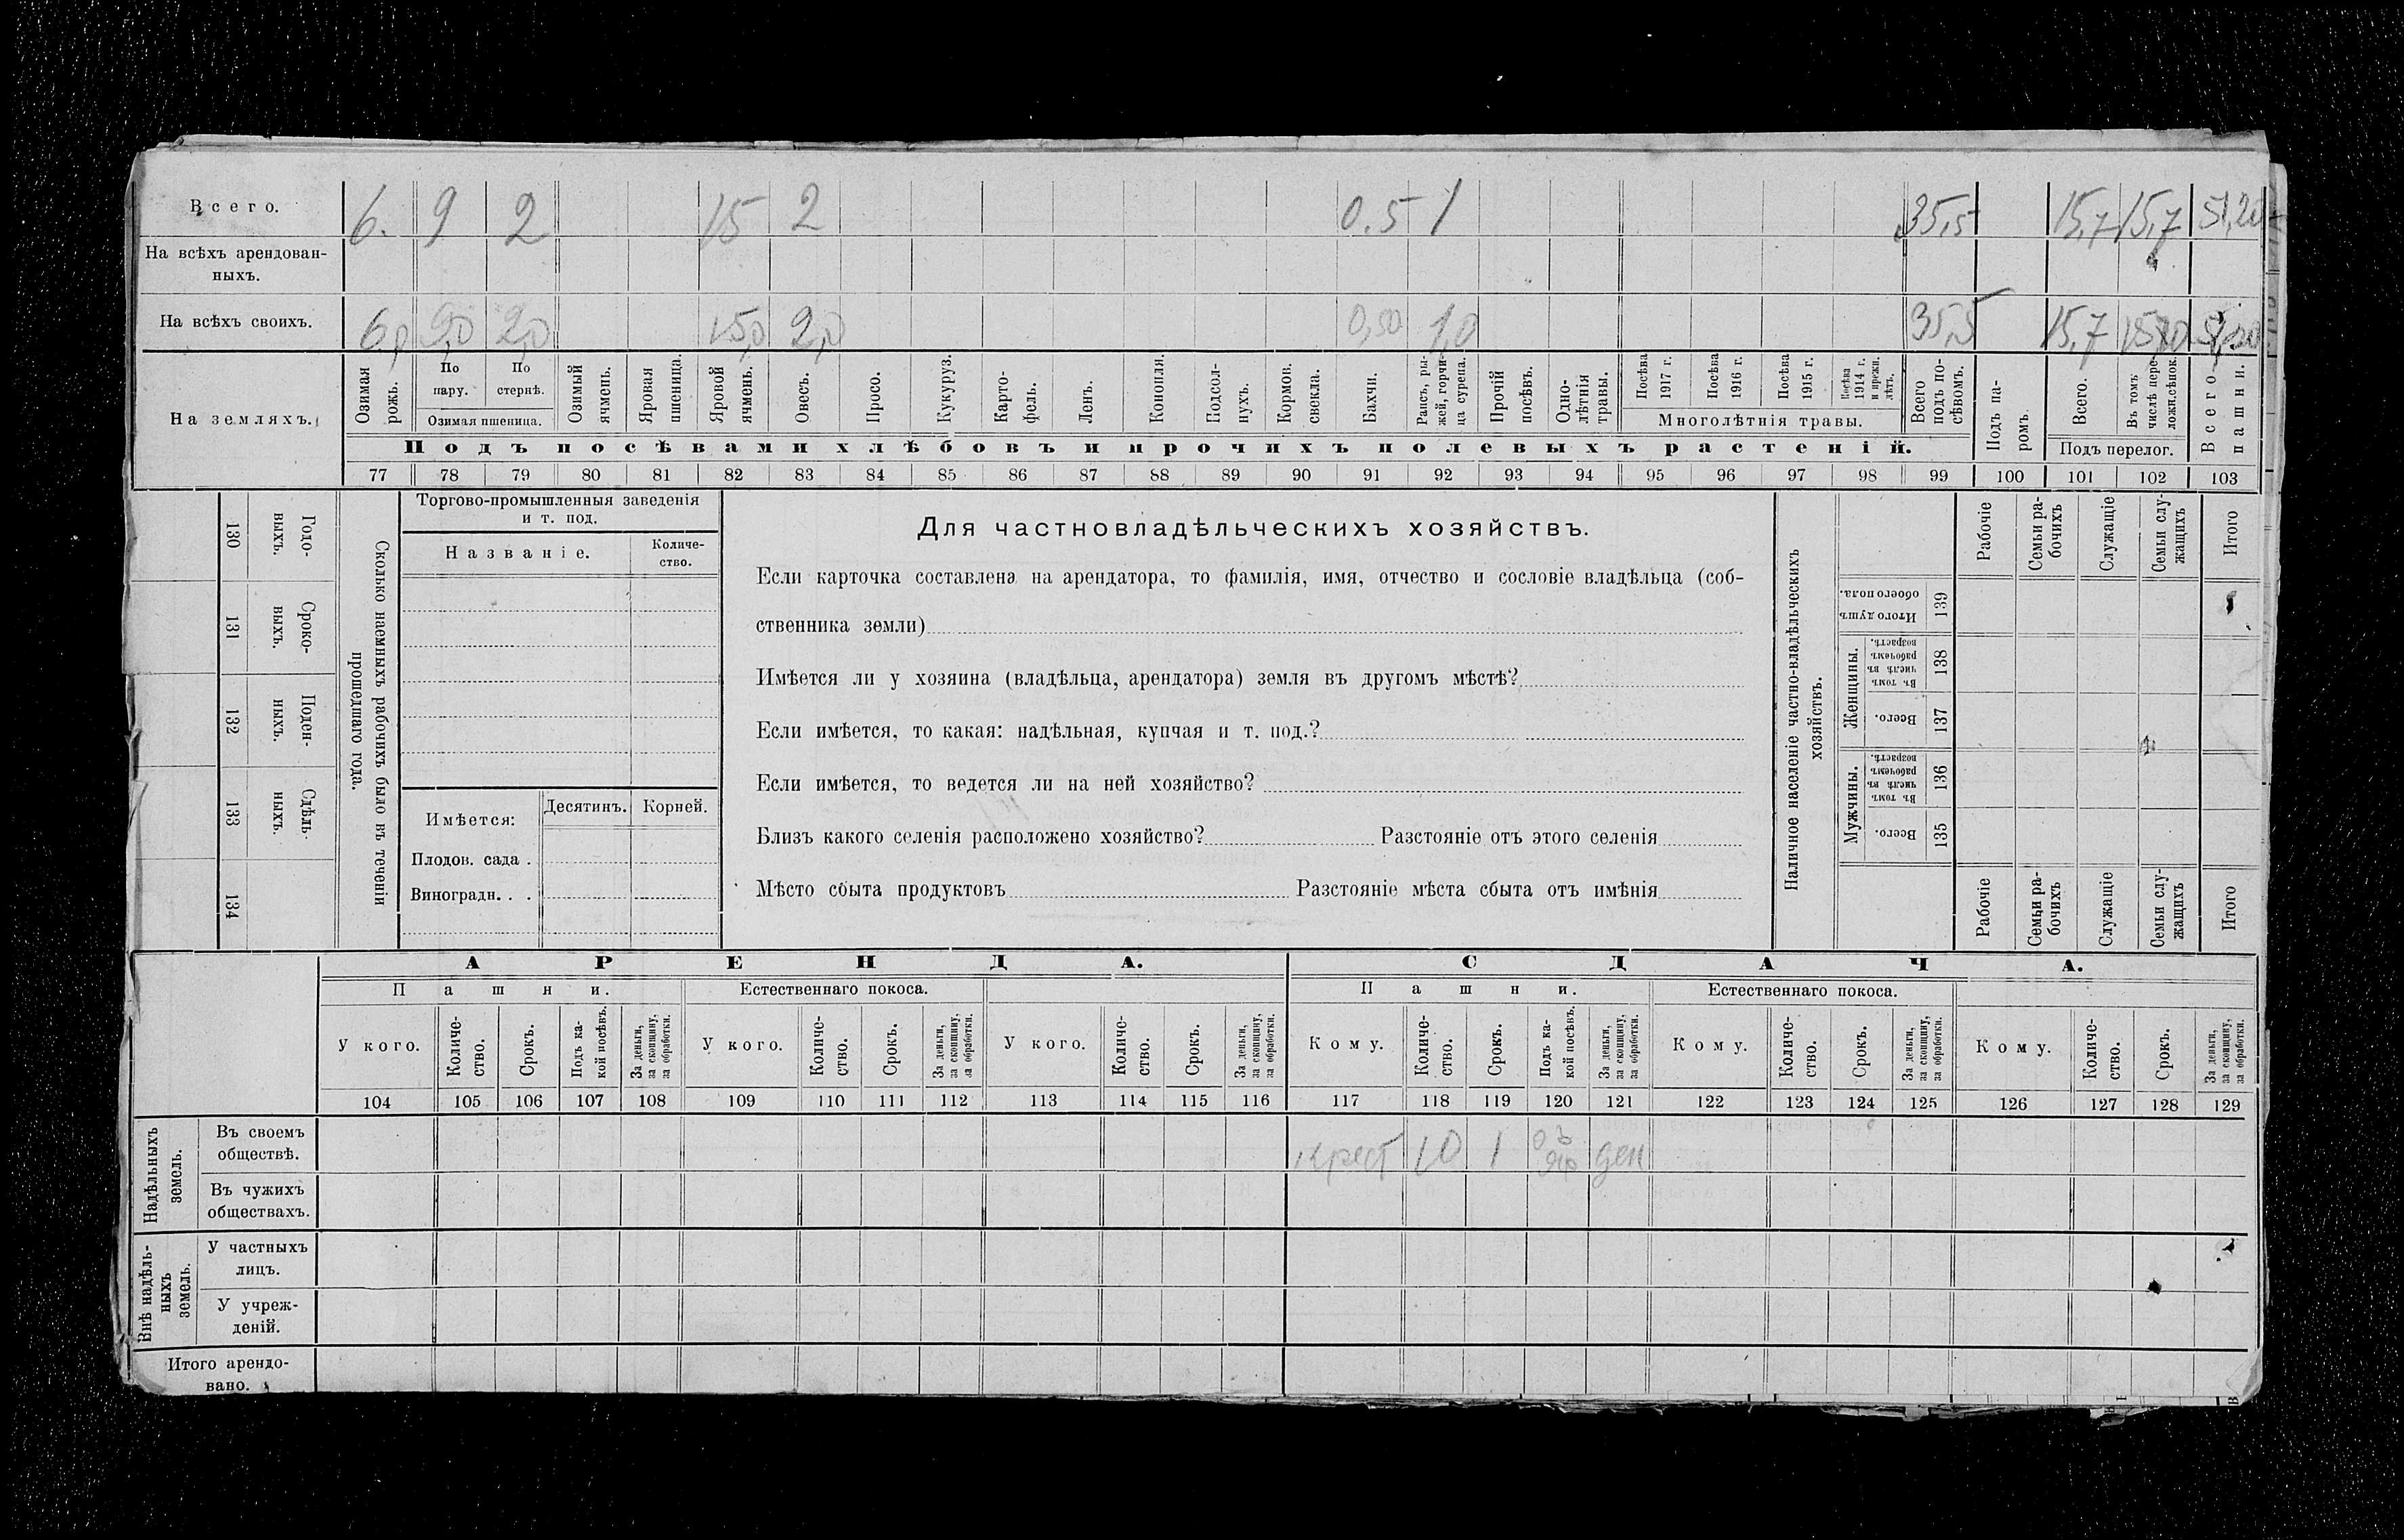 Всего. 6. 9 2 15 2 0.5 1 35,5 15,7 15,7 51,20
На всѣхъ арендован-
ныхъ.
На всѣхъ своихъ. 6,0 9,0 2,0 15,0 2,0 0,50 1,0 35,5 15,7
На земляхъ.
Озимая рожь.
По пару.
По стернѣ.
Озимая пшеница.
Озимый ячмень.
Яровая пшеница.
Яровой ячмень.
Овесъ.
Просо.
Кукуруз.
Карто-
фель.
Ленъ.
Конопля.
Подсол-
нухъ.
Кормов. свекла.
Бахчи.
Рапсъ, ры-
жей, горчи-
ца сурепа.
Прочій посѣвъ.
Одно-
лѣтнія травы.
Посѣва 1917 г.
Посѣва 1916 г.
Посѣва 1915 г.
Посѣва 1914 г. и прежн. лѣтъ.
Многолѣтнія травы.
Всего подъ по-
сѣвомъ.
Подъ па-
ромъ.
Всего.
Въ томъ числѣ пере-
ложн. сѣнок.
Подъ перелог.
Всего пашни.
Подъ посѣвами хлѣбовъ и прочихъ полевыхъ растеній.
77 78 79 80 81 82 83 84 85 86 87 88 89 90 91 92 93 94 95 96 97 98 99 100 101 102 103
130 Годо-
выхъ.
131 Сроко-
выхъ.
132 Поден-
ныхъ.
133 Сдѣль-
ныхъ.
134
Сколько наемныхъ рабочихъ было въ теченіи
прошедшаго года.
Торгово-промышленныя заведенія
и т. под.
Названіе.
Количе-
ство.
Имѣется: Десятинъ. Корней.
Плодов. сада .
Виноградн. . .
Для частновладѣльческихъ хозяйствъ.
Если карточка составлена на арендатора, то фамилія, имя, отчество и сословіе владѣльца (соб-
ственника земли)
Имѣется ли у хозяина (владѣльца, арендатора) земля въ другомъ мѣстѣ?
Если имѣется, то какая: надѣльная, купчая и т. под.?
Если имѣется, то ведется ли на ней хозяйство?
Близъ какого селенія расположено хозяйство? Разстояніе отъ этого селенія
Мѣсто сбыта продуктовъ Разстояніе мѣста сбыта отъ имѣнія
Наличное населеніе частно-владѣльческихъ
хозяйствъ.
Рабочіе
Семьи ра-
бочихъ
Служащіе
Семьи слу-
жащихъ
Итого
Итого душъ обоего пола. 139
Женщины.
Въ томъ числѣ въ рабочемъ возрастѣ. 138
Всего. 137
Мужчины.
Въ томъ числѣ въ рабочемъ возрастѣ. 136
Всего. 135
Рабочіе
Семьи ра-
бочихъ
Служащіе
Семьи слу-
жащихъ
Итого
АРЕНДА. СДАЧА.
Пашни. Естественнаго покоса. Пашни. Естественнаго покоса.
У кого.
Количе-
ство.
Срокъ.
Подъ ка-
кой посѣвъ.
За деньги,
за скопщину,
за обработки.
У кого.
Количе-
ство.
Срокъ.
За деньги,
за скопщину,
за обработки.
У кого.
Количе-
ство.
Срокъ.
За деньги,
за скопщину,
за обработки.
Кому.
Количе-
ство.
Срокъ.
Подъ ка-
кой посѣвъ.
За деньги,
за скопщину,
за обработки.
Кому.
Количе-
ство.
Срокъ.
За деньги,
за скопщину,
за обработки.
Кому.
Количе-
ство.
Срокъ.
За деньги,
за скопщину,
за обработки.
104 105 106 107 108 109 110 111 112 113 114 115 116 117 118 119 120 121 122 123 124 125 126 127 128 129
Надѣльныхъ
земель.
Въ своемъ
обществѣ.
крест 10 1 ден
Въ чужихъ
обществахъ.
Внѣ надѣль-
ныхъ
земель.
У частныхъ
лицъ.
У учреж-
деній.
Итого арендо-
вано.